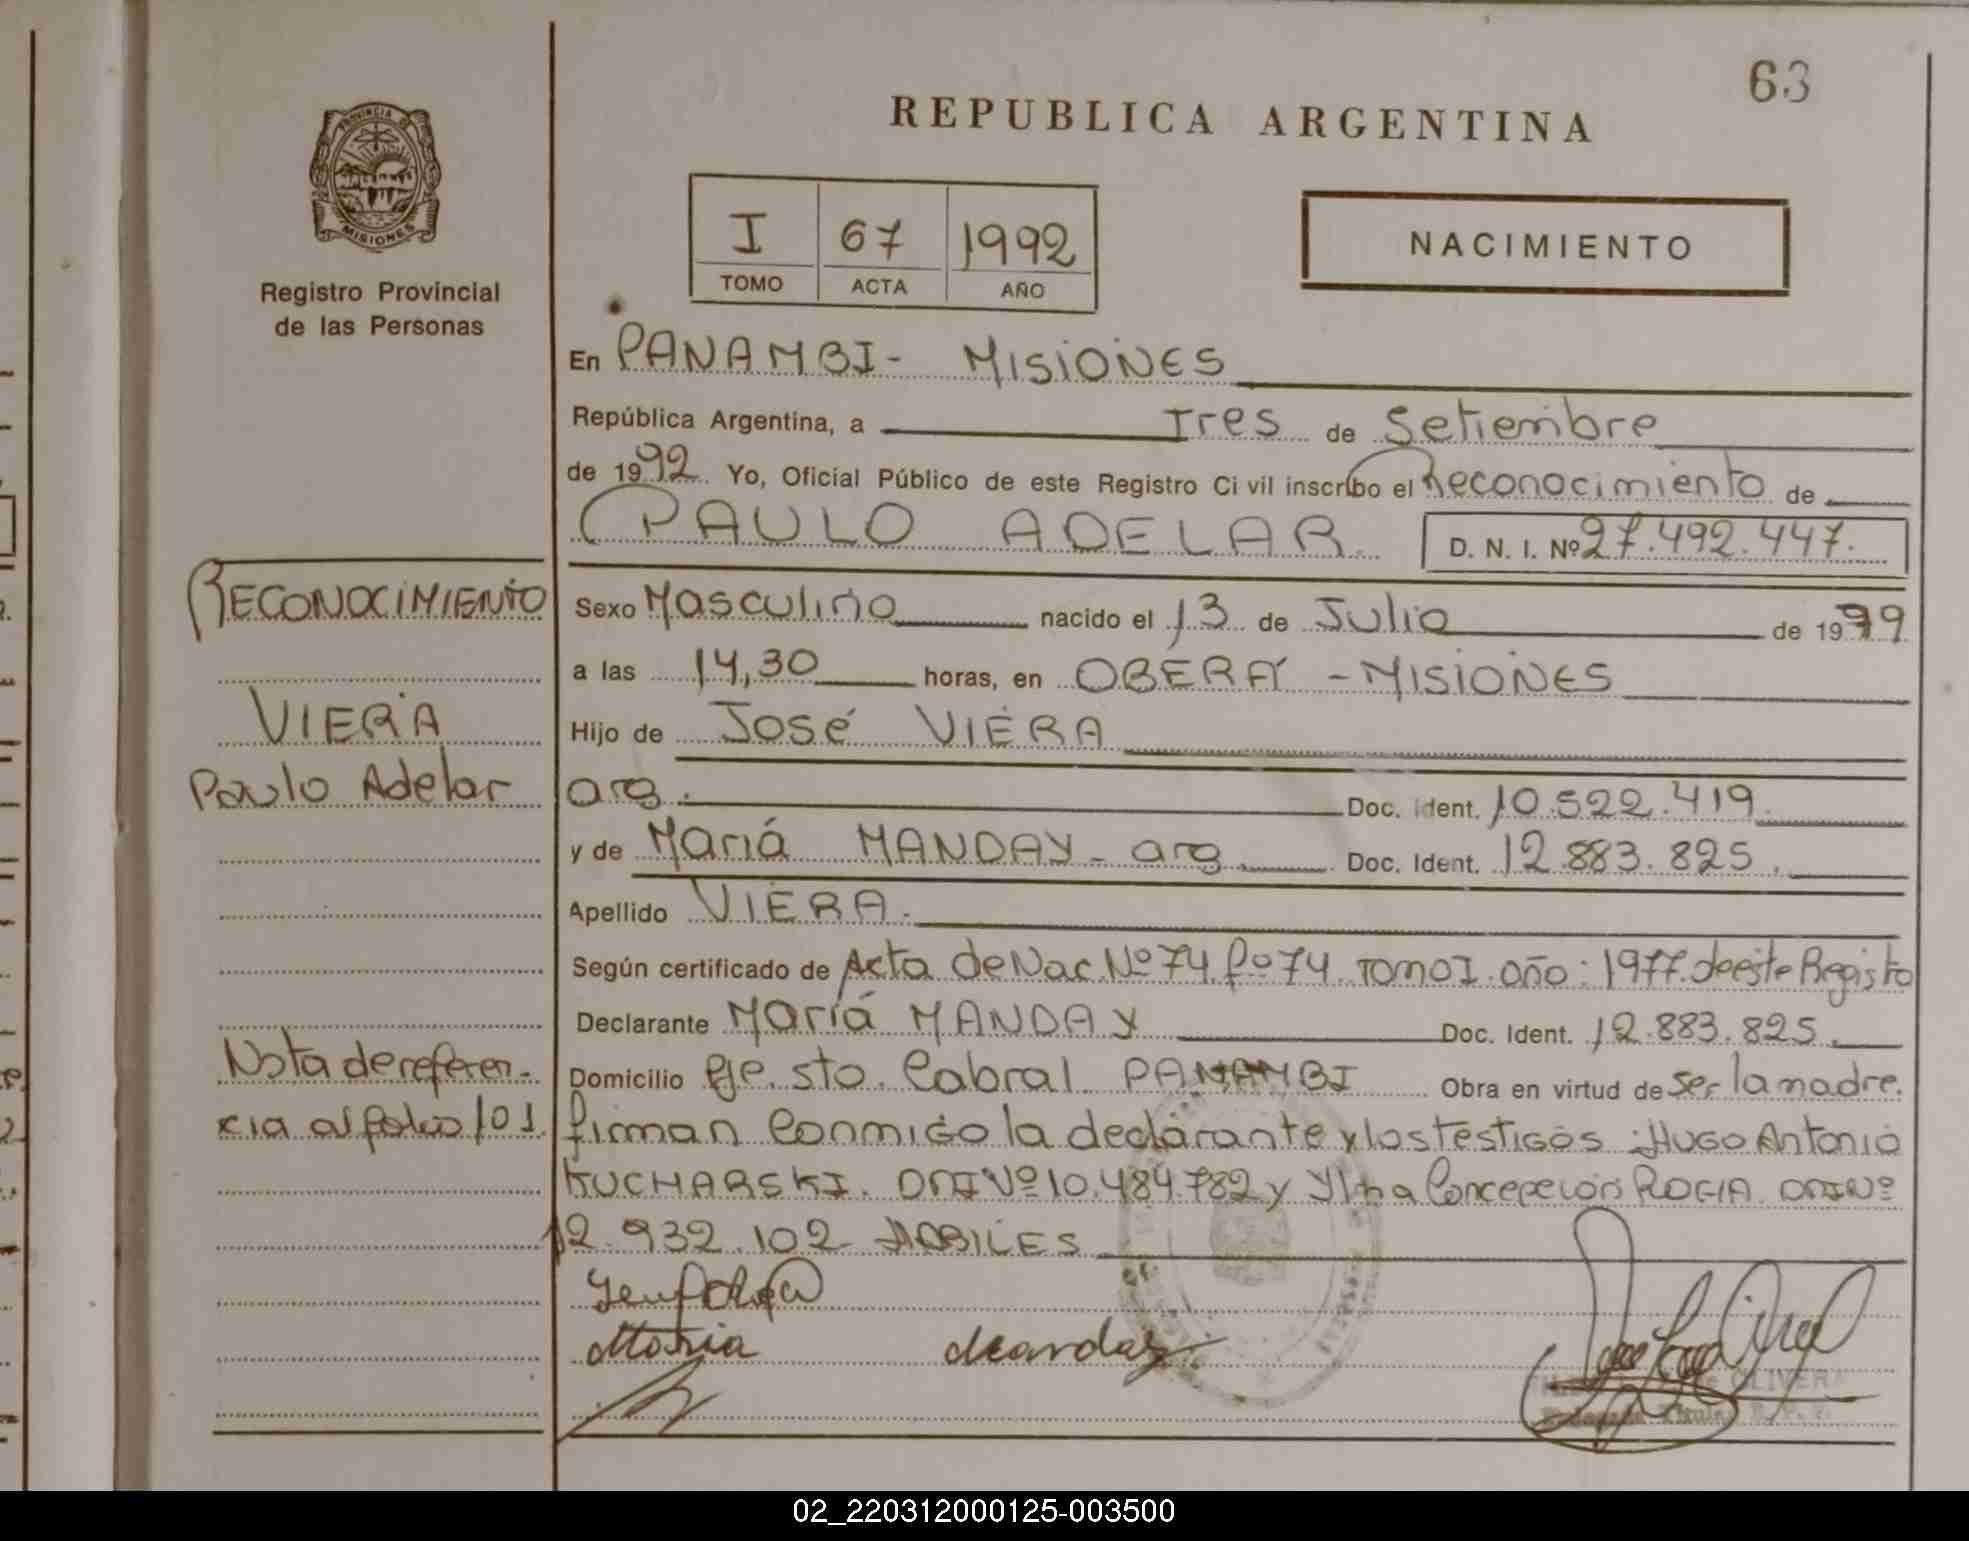 63
REPUBLICA ARGENTINA
PROVINCIA DE
MISIONES
Registro Provincial
de las Personas
I 67 1992
TOMO ACTA AÑO
NACIMIENTO
En PANAMBI - MISIONES
República Argentina, a Tres de Setiembre
de 1992 Yo, Oficial Público de este Registro Civil inscribo el Reconocimiento de
PAULO ADELAR D. N. I. Nº 27.492.447.
Sexo Masculino nacido el 13 de Julio de 19
a las 14,30 horas, en OBERÁ - MISIONES
Hijo de José VIERA
arg. Doc. Ident. 10.522.419.
y de María MANDAY - arg. Doc. Ident. 12.883.825.
Apellido VIERA.
Según certificado de Acta de Nac. Nº 74. Fº 74. TOMO I. año: 1977. de este Registro
Declarante María MANDAY Doc. Ident. 12.883.825.
Domicilio Eje. sto. Cabral PANAMBI Obra en virtud de ser la madre.
firman conmigo la declarante y los testigos: Hugo Antonio
KUCHARSKI. DNI Nº 10.484.782 y Concepción DNI Nº
12.932.102 HABILES
Maria Manday
OLIVERA
RECONOCIMIENTO
VIERA
Paulo Adelar
Nota de referen-
cia al folio 101
02_220312000125-003500